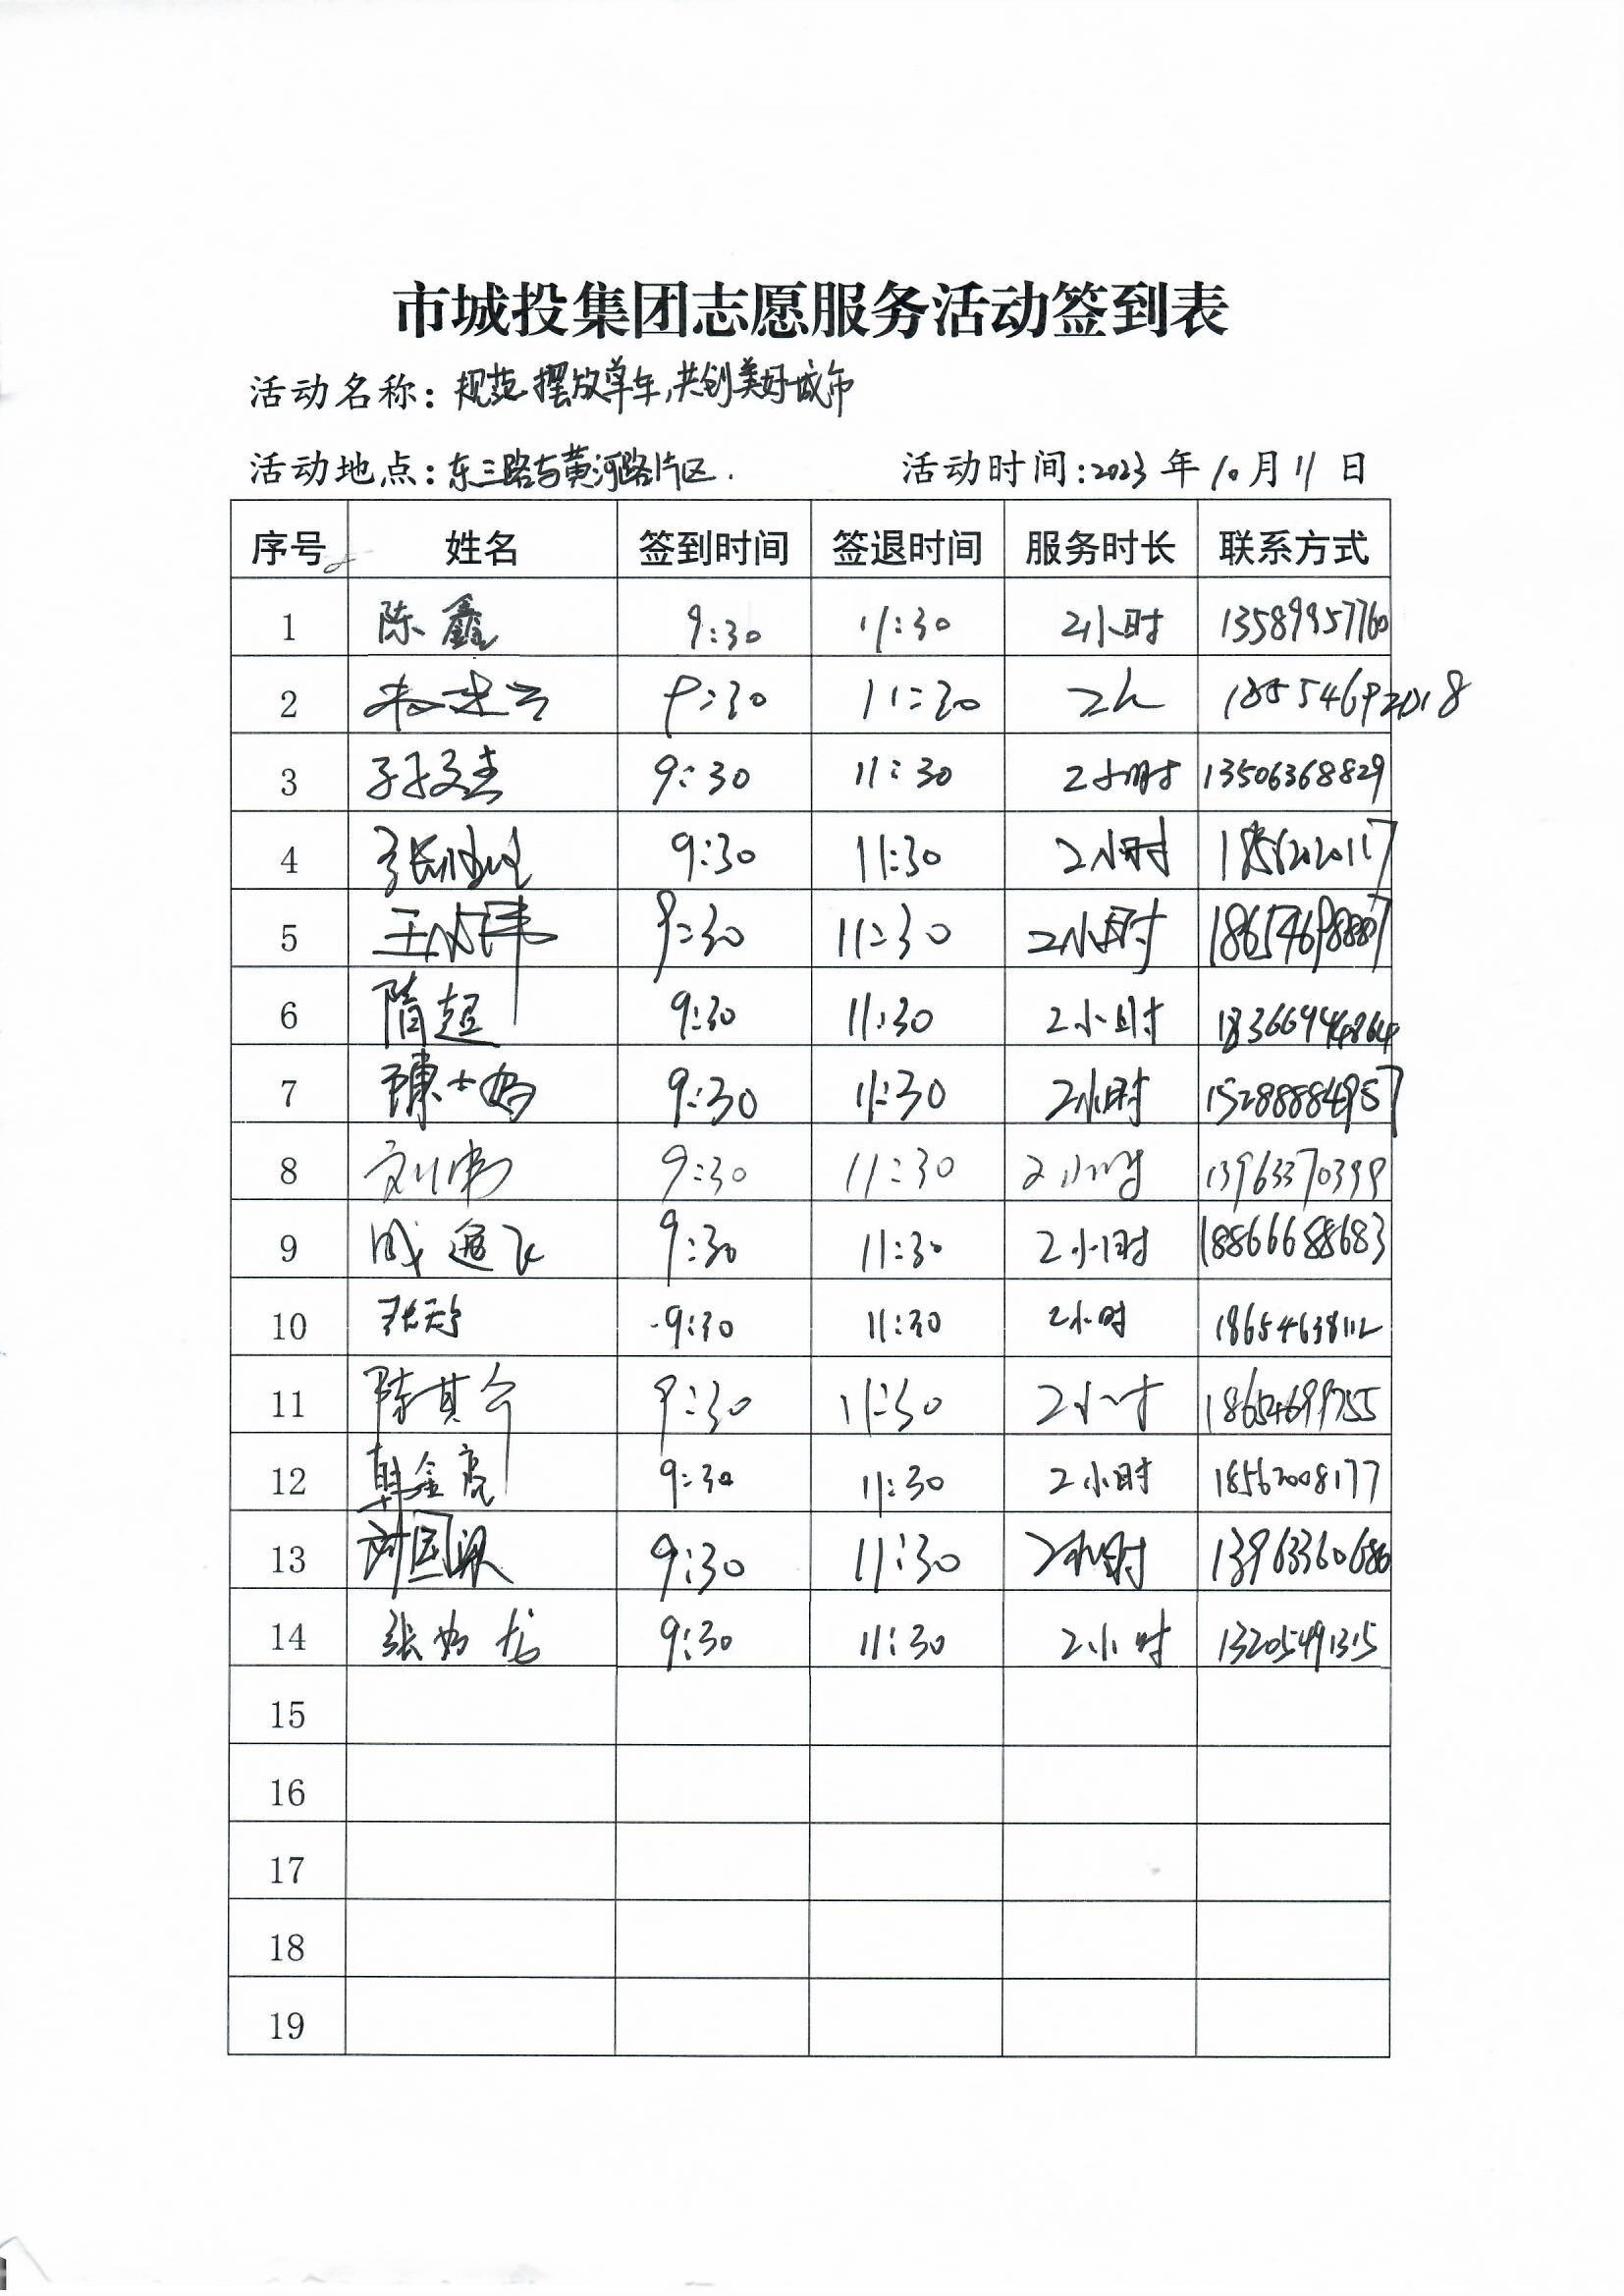 市城投集团志愿服务活动签到表
活动名称：规范摆放单车，共创美好城市
活动地点：东三路与黄河路片区. 活动时间：2023 年 10 月 11 日
序号 姓名 签到时间 签退时间 服务时长 联系方式
1 陈鑫 9:30 11:30 2小时 13589957760
2 9:30 11:30 2h
3 孙文杰 9:30 11:30 2小时 13506368829
4 9:30 11:30 2小时
5 9:30 11:30 2小时
6 隋超 9:30 11:30 2小时
7 9:30 11:30 2小时 15288884957
8 刘伟 9:30 11:30 2小时 13963370399
9 9:30 11:30 2小时 18866688683
10 9:30 11:30 2小时 18654638112
11 陈其今 9:30 11:30 2小时 18654699755
12 韩金亮 9:30 11:30 2小时 18562008177
13 9:30 11:30 2小时 13963360680
14 9:30 11:30 2小时 13205491315
15
16
17
18
19